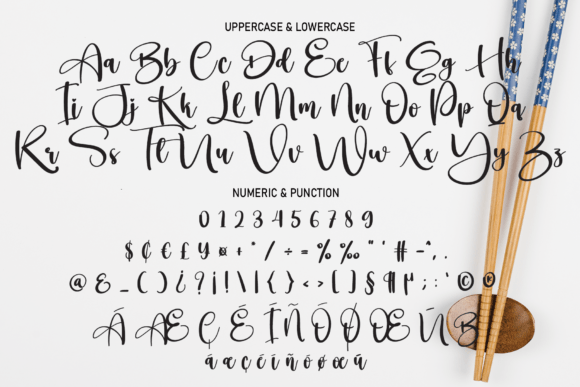 UPPERCASE & LOWERCASE
Aa Bb Cc Dd Ee Ff Gg Hh
Ii Jj Kk Ll Mm Nn Oo Pp Qq
Rr Ss Tt Uu Vv Ww Xx Yy Zz
NUMERIC & PUNCTION
0 1 2 3 4 5 6 7 8 9
$ ¢ € £ ¥ ¤ + * / ÷ = % ‰ " ' # - ^ , .
@ & _ ( ) ¿ ? ¡ ! \ | { } < > [ ] § ¶ µ ; : ' © ©
Á Æ Ç É Í Ñ Ó Ø Œ Ú ß
á æ ç é í ñ ó ø œ ú